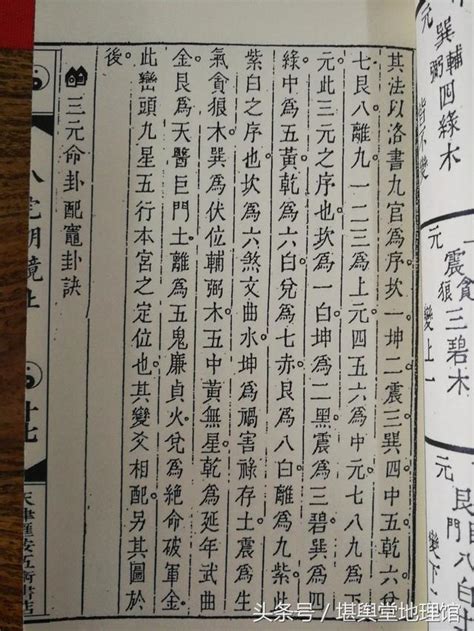 巽輔弼四綠木
皆不變
元
震貪狼三碧木
變上一
元
其法以洛書九宮為序。坎一坤二震三巽四中五乾六兌
七艮八離九。一二三為上元。四五六為中元。七八九為下
元。此三元之序也。坎為一白。坤為二黑。震為三碧。巽為四
綠。中為五黃。乾為六白。兌為七赤。艮為八白。離為九紫。此
紫白之序也。坎為六煞文曲水。坤為禍害祿存土。震為生
氣貪狼木。巽為伏位輔弼木。五中黃無星。乾為延年武曲
金。艮為天醫巨門土。離為五鬼廉貞火。兌為絕命破軍金。
此巒頭九星五行本宮之定位也。其變爻相配另具圖於
後。
三元命卦配竈卦訣
八宅明鏡上
廿七
头条号/堪舆堂地理馆